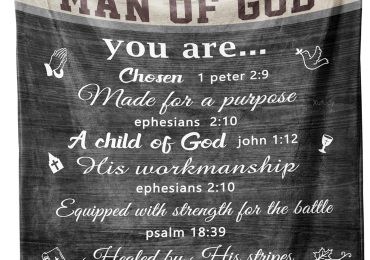 MAN OF GOD
you are...
Chosen 1 peter 2:9
Made for a purpose
ephesians 2:10
A child of God john 1:12
His workmanship
ephesians 2:10
Equipped with strength for the battle
psalm 18:39
Healed by His stripes